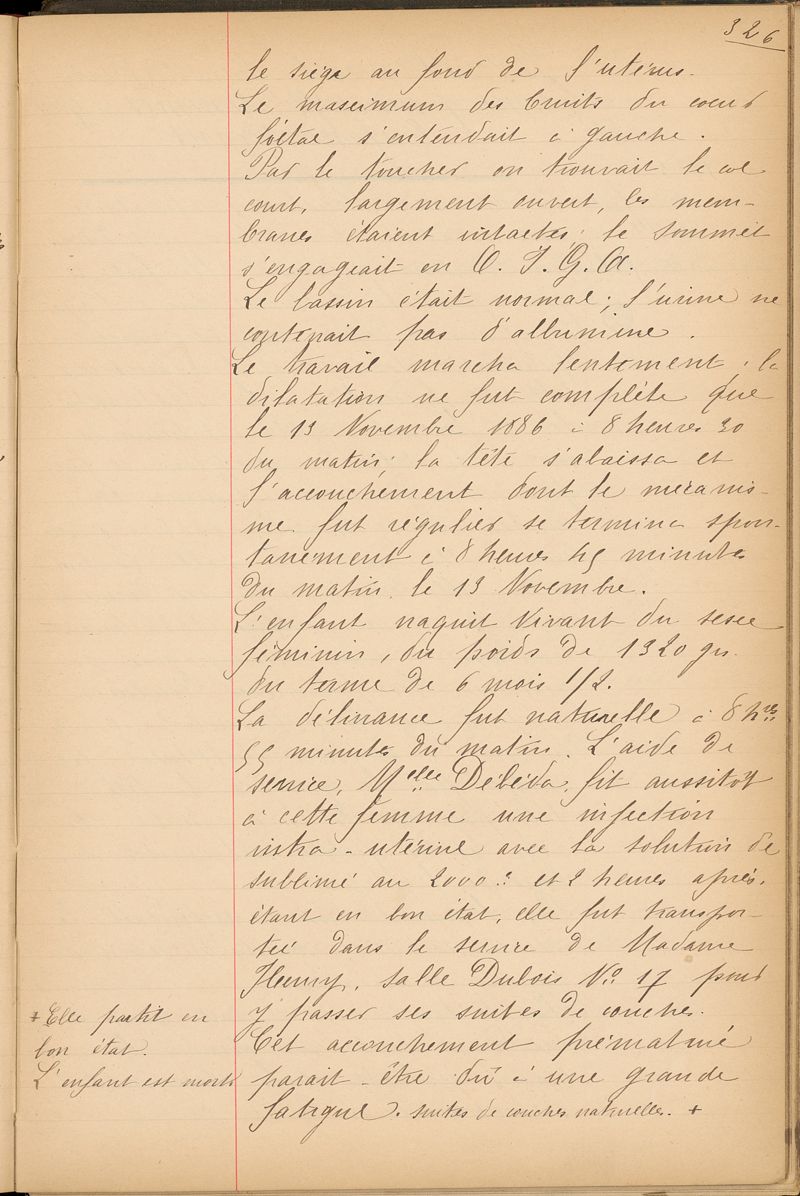 326
le siège au fond de l'utérus.
Le maximum des bruits du coeur
foetal s'entendait à gauche.
Par le toucher on trouvait le col
court, largement ouvert, les mem-
branes étaient intactes; le sommet
s'engageait en O. I. G. A.
Le bassin était normal; l'urine ne
contenait pas d'albumine.
Le travail marcha lentement, la
dilatation ne fut complète que
le 13 Novembre 1886 à 8 heures 30
du matin; la tête s'abaissa et
l'accouchement dont le mécanis-
me fut régulier se termina spon-
tanément à 8 heures 45 minutes
du matin le 13 Novembre.
L'enfant naquit vivant du sexe
féminin, du poids de 1320 grs.
du terme de 6 mois 1/2.
La délivrance fut naturelle à 8 hres
55 minutes du matin. L'aide de
service, Melle Débéda, fit aussitôt
à cette femme une injection
intra-utérine avec la solution de
sublimé au 2000e et 2 heures après,
étant en bon état, elle fut transpor-
tée dans le service de Madame
Henry, salle Dubois No 17 pour
y passer ses suites de couches.
Cet accouchement prématuré
parait-être dû à une grande
fatigue. suites de couches naturelles. +
+ Elle partit en
bon état.
L'enfant est morte